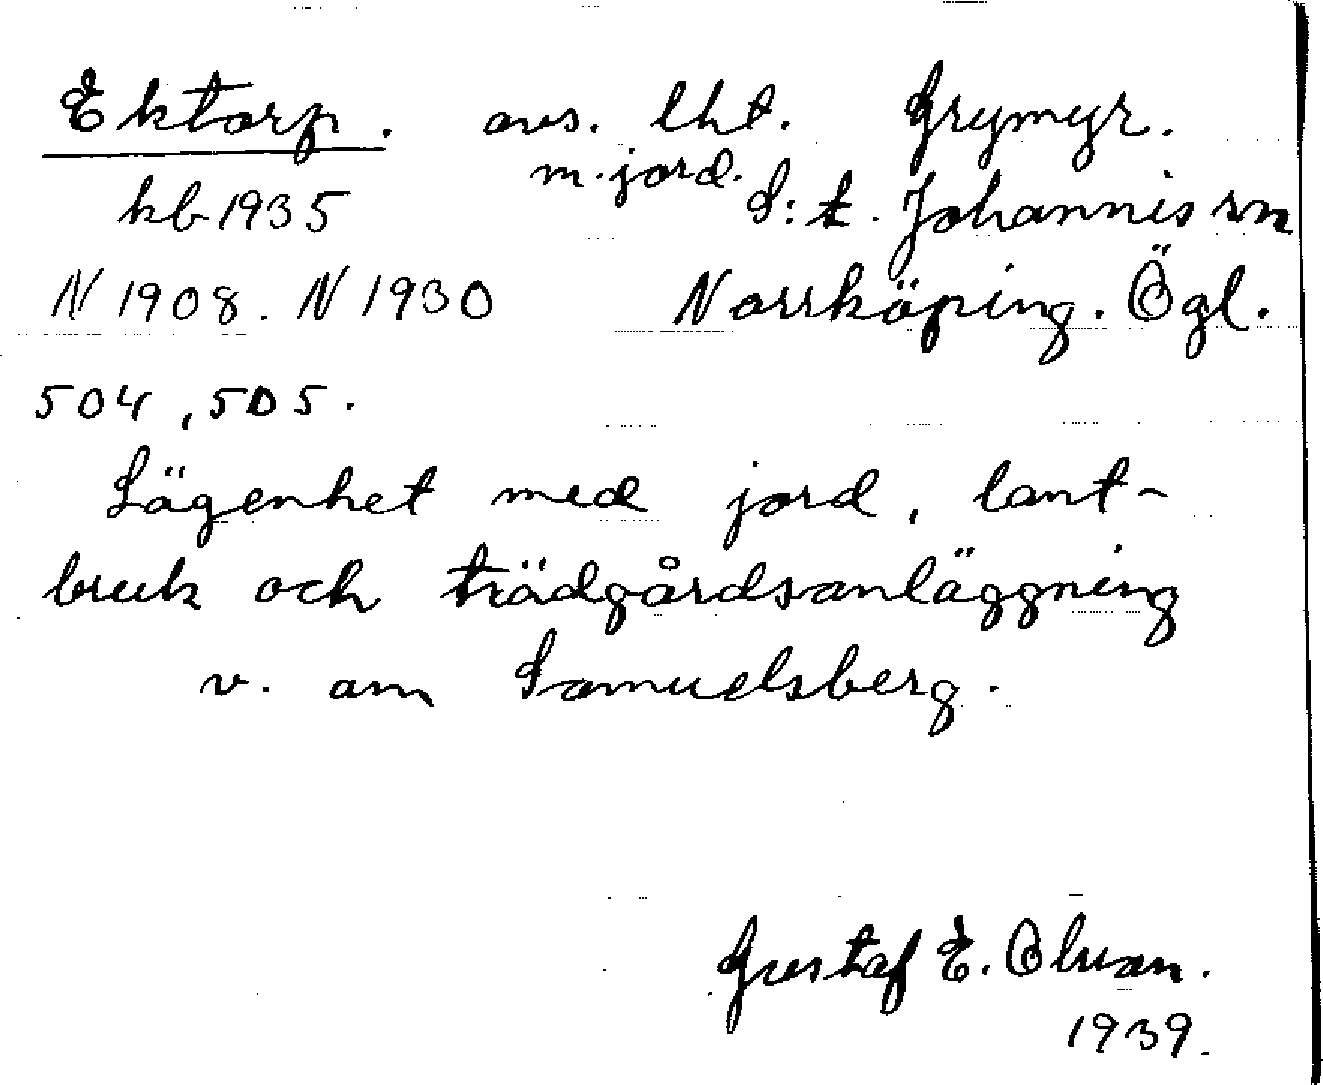 Ektorp. avs. lht. Grymyr.
m. jord.
kb 1935 S:t. Johannis sn
N 1908. N 1930 Norrköping. Ögl.
504, 505.
Lägenhet med jord, lant-
bruk och trädgårdsanläggning
v. om Samuelsberg.
Gustaf E. Olsson.
1939.